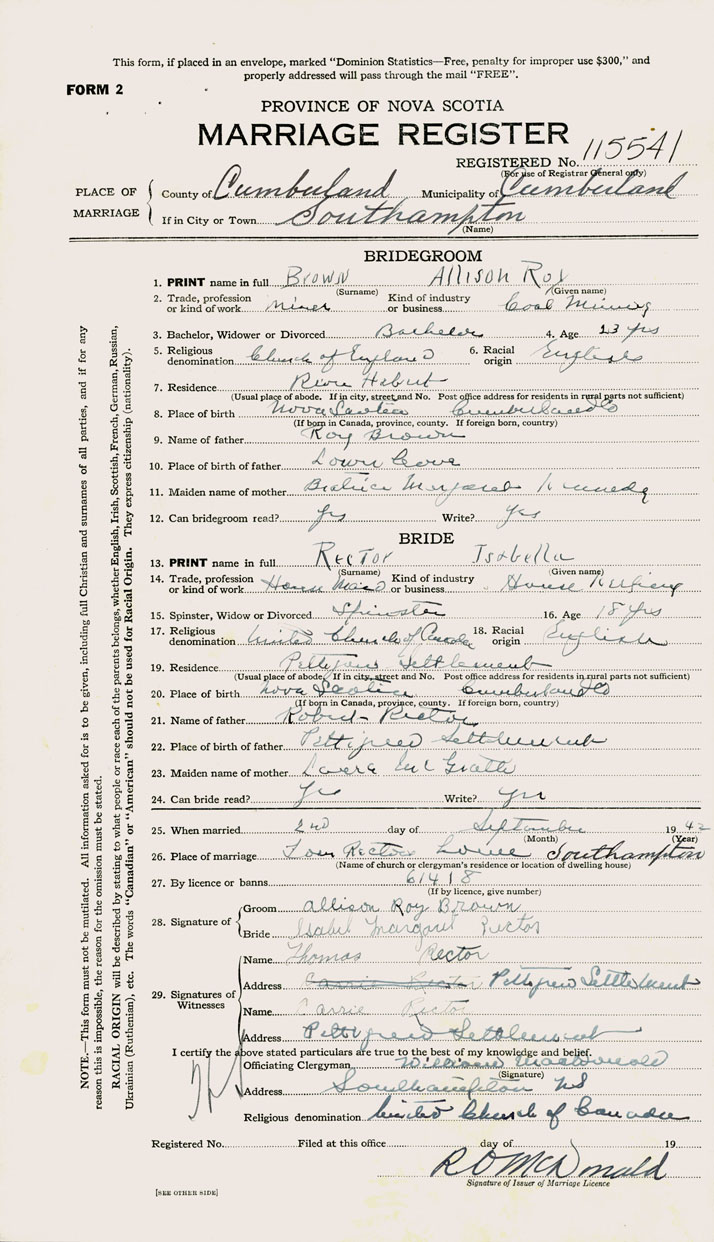 This form, if placed in an envelope, marked "Dominion Statistics—Free, penalty for improper use $300," and
properly addressed will pass through the mail "FREE".
FORM 2
PROVINCE OF NOVA SCOTIA
MARRIAGE REGISTER
REGISTERED No. 115541
(For use of Registrar General only)
PLACE OF MARRIAGE
County of Cumberland Municipality of Cumberland
If in City or Town Southampton
(Name)
BRIDEGROOM
1. PRINT name in full Brown Allison Roy
(Surname) (Given name)
2. Trade, profession or kind of work miner Kind of industry or business Coal Mining
3. Bachelor, Widower or Divorced Bachelor 4. Age 23 yrs
5. Religious denomination Church of England 6. Racial origin English
7. Residence River Hebert
(Usual place of abode. If in city, street and No. Post office address for residents in rural parts not sufficient)
8. Place of birth Nova Scotia Cumberland Co
(If born in Canada, province, county. If foreign born, country)
9. Name of father Roy Brown
10. Place of birth of father Lower Cove
11. Maiden name of mother Beatrice Margaret Kennedy
12. Can bridegroom read? Yes Write? Yes
BRIDE
13. PRINT name in full Rector Isabella
(Surname) (Given name)
14. Trade, profession or kind of work House Maid Kind of industry or business House Keeping
15. Spinster, Widow or Divorced Spinster 16. Age 18 yrs
17. Religious denomination United Church of Canada 18. Racial origin English
19. Residence Pettigrew Settlement
(Usual place of abode. If in city, street and No. Post office address for residents in rural parts not sufficient)
20. Place of birth Nova Scotia Cumberland Co
(If born in Canada, province, county. If foreign born, country)
21. Name of father Robert Rector
22. Place of birth of father Pettigrew Settlement
23. Maiden name of mother McGrath
24. Can bride read? Yes Write? Yes
25. When married 2nd day of September 1942
(Month) (Year)
26. Place of marriage Tom Rector Southampton
(Name of church or clergyman's residence or location of dwelling house)
27. By licence or banns 61418
(If by licence, give number)
28. Signature of
Groom Allison Roy Brown
Bride Isabel Margaret Rector
29. Signatures of Witnesses
Name Thomas Rector
Address Carrie Rector Pettigrew Settlement
Name Carrie Rector
Address Pettigrew Settlement
I certify the above stated particulars are true to the best of my knowledge and belief.
Officiating Clergyman William MacDonald
(Signature)
Address Southampton NS
Religious denomination United Church of Canada
Registered No. Filed at this office day of 19
R D McDonald
Signature of Issuer of Marriage Licence
[SEE OTHER SIDE]
NOTE.—This form must not be mutilated. All information asked for is to be given, including full Christian and surnames of all parties, and if for any
reason this is impossible, the reason for the omission must be stated.
RACIAL ORIGIN will be described by stating to what people or race each of the parents belongs, whether English, Irish, Scottish, French, German, Russian,
Ukrainian (Ruthenian), etc. The words "Canadian" or "American" should not be used for Racial Origin. They express citizenship (nationality).